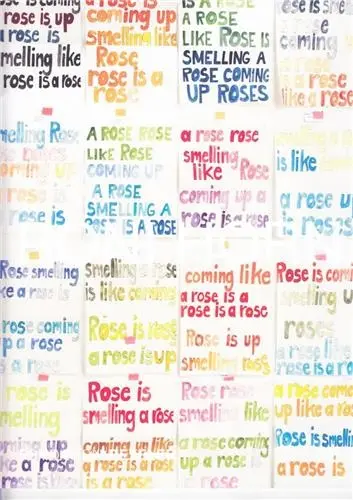 rose is up
smelling like
rose is a rose
coming up
smelling like
Rose
rose is a
rose
IS A ROSE
LIKE ROSE IS
SMELLING A
ROSE COMING
UP ROSES
ose is sme
a rose
coming
a rose
like a rose
melling Rose
coming up
a rose is
a rose is
A ROSE ROSE
LIKE ROSE
COMING UP
A ROSE
SMELLING A
ROSE IS A ROSE
a rose rose
smelling
like Rose
coming up a
rose is a rose
is like
a rose up
is roses
Rose smelling
ke a rose is
rose coming
up a rose
is a rose
smelling a rose
is like coming
Rose is rose
a rose is up
coming like
a rose is a
rose is a rose
Rose is up
smelling roses
Rose is comin
smelling
roses
a rose like
rose is a ros
rose is
smelling
coming up
like a rose
Rose is
smelling a rose
coming up like
a rose is a rose
is a rose
Rose rose
smelling like
a rose coming
up a rose
is a rose
a rose comi
up like a ros
Rose is smelli
a rose
is a rose